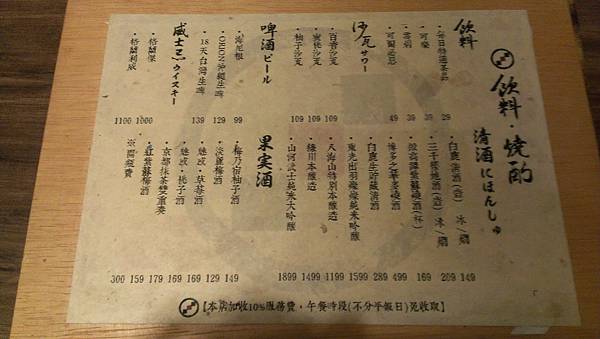 飲料・燒酌
飲料
・每日特選茶品 29
・可樂 39
・雪碧 39
・可爾必思 49
沙瓦サワー
・百香沙瓦 109
・蜜桃沙瓦 109
・柚子沙瓦 109
啤酒ビール
・海尼根 99
・ORION沖繩生啤 129
・18天台灣生啤 139
威士忌ウイスキー
・格蘭傑 1000
・格蘭利威 1100
清酒にほんしゅ
・白鹿清酒(壺) 冰/燗 149
・三千櫻地酒(壺) 冰/燗 209
・鍛高譚紫蘇燒酒(杯) 169
・博多之華麥燒酒 499
・白鹿生貯藏清酒 289
・東光出羽燦燦純米吟釀 1599
・八海山特別本釀造 1199
・綠川本釀造 1499
・山河武士純米大吟釀 1899
果実酒
・梅乃宿柚子酒 149
・淡麗梅酒 129
・魅惑・草莓酒 169
・魅惑・桃子酒 169
・京都抹茶雙重奏 179
・紅紫蘇梅酒 159
※開瓶費 300
【本店加收10%服務費・午餐時段(不分平假日)免收取】